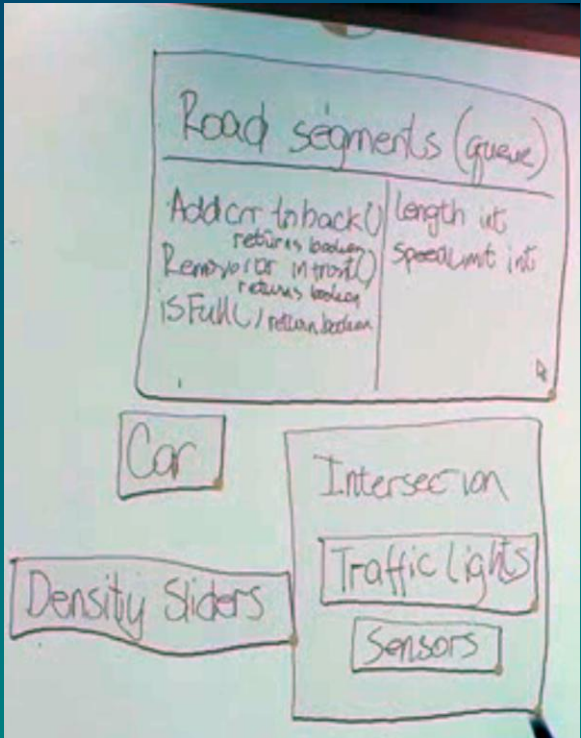 Road segments (queue)
Add car to back()
returns boolean
Remove car in front()
returns boolean
isFull() return boolean
length int
speedLimit int
Car
Intersection
Traffic Lights
Sensors
Density Sliders